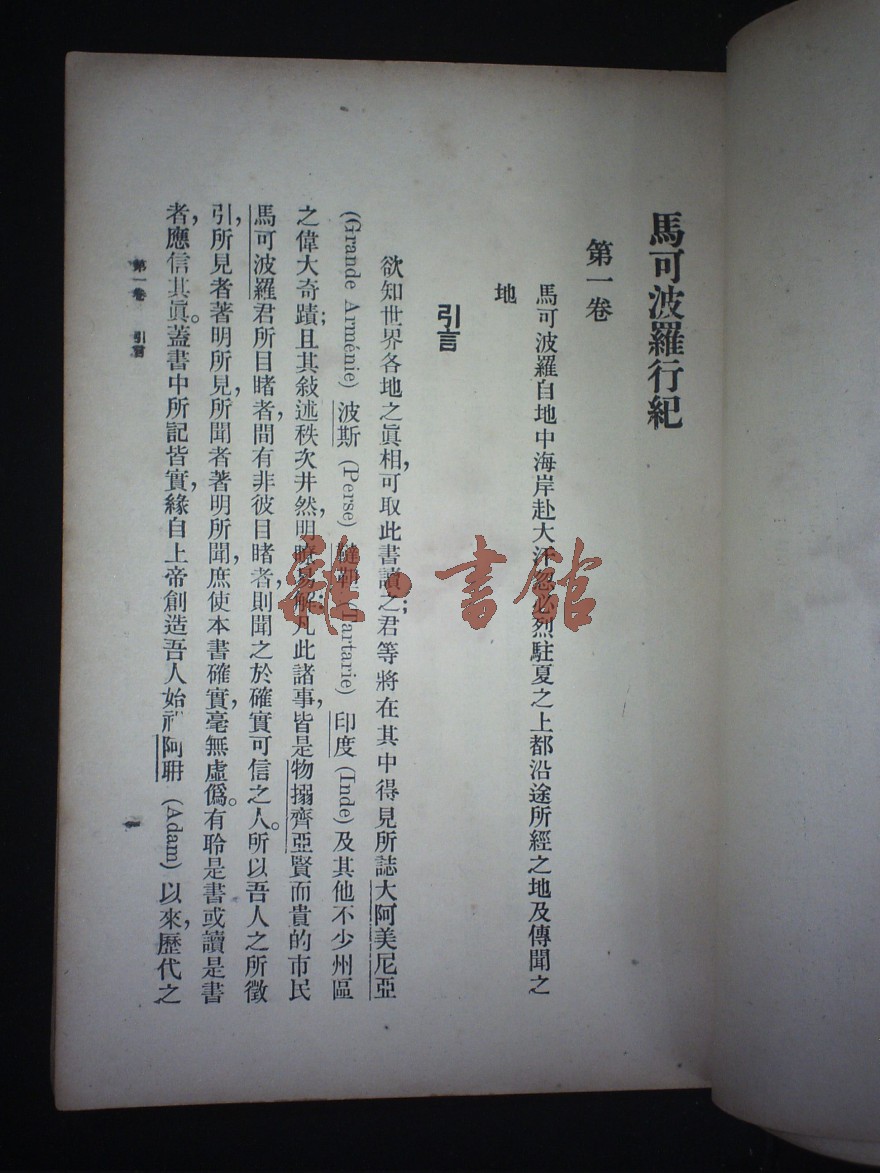 馬可波羅行紀
第一卷
馬可波羅自地中海岸赴大汗忽必烈駐夏之上都沿途所經之地及傳聞之
地
引言
欲知世界各地之眞相,可取此書讀之;君等將在其中得見所誌大阿美尼亞
(Grande Arménie) 波斯 (Perse) 韃靼 (Tartarie) 印度 (Inde) 及其他不少州區
之偉大奇蹟;且其敍述秩次井然,明瞭易解;凡此諸事,皆是物搦齊亞賢而貴的市民
馬可波羅君所目睹者,間有非彼目睹者,則聞之於確實可信之人。所以吾人之所徵
引,所見者著明所見,所聞者著明所聞,庶使本書確實,毫無虛僞。有聆是書或讀是書
者,應信其眞。蓋書中所記皆實,緣自上帝創造吾人始祖阿聃 (Adam) 以來,歷代之
第一卷 引言
一
雜·書館